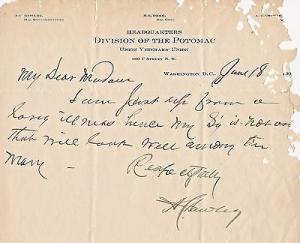 HEADQUARTERS
DIVISION OF THE POTOMAC
UNION VETERANS' UNION
WASHINGTON, D.C., June 18
My Dear Madam
I am just up from a
long illness hence my Sig is not one
that will look well among the
many -
Respectfully